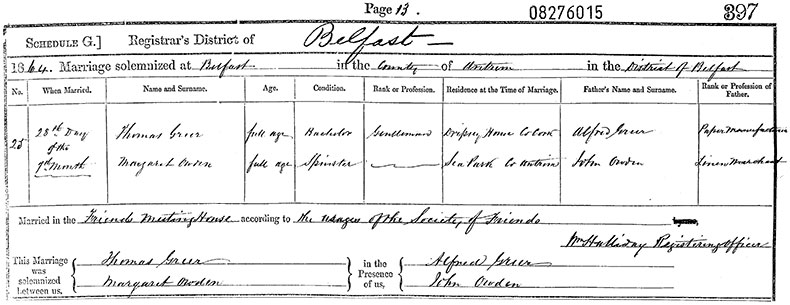 Page 13. 08276015 397
SCHEDULE G.] Registrar's District of Belfast
1864. Marriage solemnized at Belfast in the County of Antrim in the District of Belfast
No. When Married. Name and Surname. Age. Condition. Rank or Profession. Residence at the Time of Marriage. Father's Name and Surname. Rank or Profession of Father.
25 28th Day of the 7th Month
Thomas Greer full age Bachelor Gentleman Dripsey House Co Cork Alfred Greer Paper Manufacturer
Margaret Owden full age Spinster Sea Park Co Antrim John Owden Linen Merchant
Married in the Friends Meeting House according to the usages of the Society of Friends
Wm Halliday Registering Officer
This Marriage was solemnized between us, Thomas Greer Margaret Owden in the Presence of us, Alfred Greer John Owden